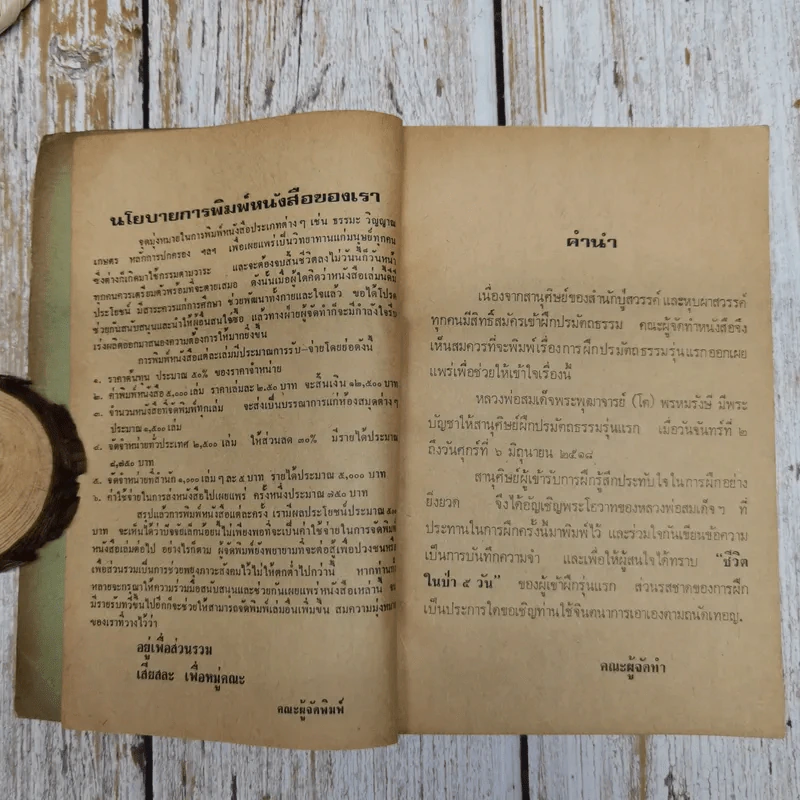 นโยบายการพิมพ์หนังสือของเรา
จุดมุ่งหมายในการพิมพ์หนังสือประเภทต่างๆ เช่น ธรรมะ วิญญาณ
เกษตร หลักการปกครอง ฯลฯ เพื่อเผยแพร่เป็นวิทยาทานแก่มนุษย์ทุกคน
ซึ่งต่างก็เกิดมาใช้กรรมตามวาระ และจะต้องจบสิ้นชีวิตลงไม่วันนี้ก็วันหน้า
ทุกคนควรเตรียมตัวพร้อมที่จะตายเสมอ ดังนั้นเมื่อผู้ใดคิดว่าหนังสือเล่มนี้ดีมี
ประโยชน์ มีสาระควรแก่การศึกษา ช่วยพัฒนาทั้งกายและใจแล้ว ขอได้โปรด
ช่วยกันสนับสนุนและนำให้ผู้อื่นสนใจซื้อ แล้วทางฝ่ายผู้จัดทำก็จะมีกำลังใจรีบ
เร่งผลิตออกมาสนองความต้องการให้มากยิ่งขึ้น
การพิมพ์หนังสือแต่ละเล่มมีประมาณการรับ-จ่ายโดยย่อดังนี้
๑. ราคาต้นทุน ประมาณ ๕๐% ของราคาจำหน่าย
๒. ค่าพิมพ์หนังสือ ๕,๐๐๐ เล่ม ราคาเล่มละ ๒.๕๐ บาท จะสิ้นเงิน ๑๒,๕๐๐ บาท
๓. จำนวนหนังสือที่จัดพิมพ์ทุกเล่ม จะส่งเป็นบรรณาการแก่ห้องสมุดต่างๆ
ประมาณ ๑,๕๐๐ เล่ม
๔. จัดจำหน่ายทั่วประเทศ ๒,๕๐๐ เล่ม ให้ส่วนลด ๓๐% มีรายได้ประมาณ
๘,๗๕๐ บาท
๕. จัดจำหน่ายที่สำนัก ๑,๐๐๐ เล่มๆ ละ ๕ บาท รายได้ประมาณ ๕,๐๐๐ บาท
๖. ค่าใช้จ่ายในการส่งหนังสือไปเผยแพร่ ครั้งหนึ่งประมาณ ๗๕๐ บาท
สรุปแล้วการพิมพ์หนังสือแต่ละครั้ง เรามีผลประโยชน์ประมาณ
บาท จะเห็นได้ว่าปัจจัยเล็กน้อยนี้ไม่เพียงพอที่จะเป็นค่าใช้จ่ายในการจัดพิมพ์
หนังสือเล่มต่อไป อย่างไรก็ตาม ผู้จัดพิมพ์ยังพยายามที่จะต่อสู้เพื่อปวงชน
เพื่อส่วนรวมเป็นการช่วยพยุงภาวะสังคมไว้ไม่ให้ตกต่ำไปกว่านี้ หากท่าน
หลายจะกรุณาให้ความร่วมมือสนับสนุนและช่วยกันเผยแพร่หนังสือเหล่านี้
มีรายรับทวีขึ้นไปอีกก็จะช่วยให้สามารถจัดพิมพ์เล่มอื่นเพิ่มขึ้น สมความมุ่งหมาย
ของเราที่วางไว้ว่า
อยู่เพื่อส่วนรวม
เสียสละ เพื่อหมู่คณะ
คณะผู้จัดพิมพ์
คำนำ
เนื่องจากสานุศิษย์ของสำนักปู่สวรรค์ และหุบผาสวรรค์
ทุกคนมีสิทธิ์สมัครเข้าฝึกปรมัตถธรรม คณะผู้จัดทำหนังสือจึง
เห็นสมควรที่จะพิมพ์เรื่องการฝึกปรมัตถธรรมรุ่นแรกออกเผย
แพร่เพื่อช่วยให้เข้าใจเรื่องนี้
หลวงพ่อสมเด็จพระพุฒาจารย์ (โต) พรหมรังษี มีพระ
บัญชาให้สานุศิษย์ฝึกปรมัตถธรรมรุ่นแรก เมื่อวันจันทร์ที่ ๒
ถึงวันศุกร์ที่ ๖ มิถุนายน ๒๕๑๘
สานุศิษย์ผู้เข้ารับการฝึกรู้สึกประทับใจในการฝึกอย่าง
ยิ่งยวด จึงได้อัญเชิญพระโอวาทของหลวงพ่อสมเด็จฯ ที่
ประทานในการฝึกครั้งนี้มาพิมพ์ไว้ และร่วมใจกันเขียนข้อความ
เป็นการบันทึกความจำ และเพื่อให้ผู้สนใจได้ทราบ “ชีวิต
ในป่า ๕ วัน” ของผู้เข้าฝึกรุ่นแรก ส่วนรสชาดของการฝึก
เป็นประการใดขอเชิญท่านใช้จินตนาการเอาเองตามถนัดเทอญ.
คณะผู้จัดทำ